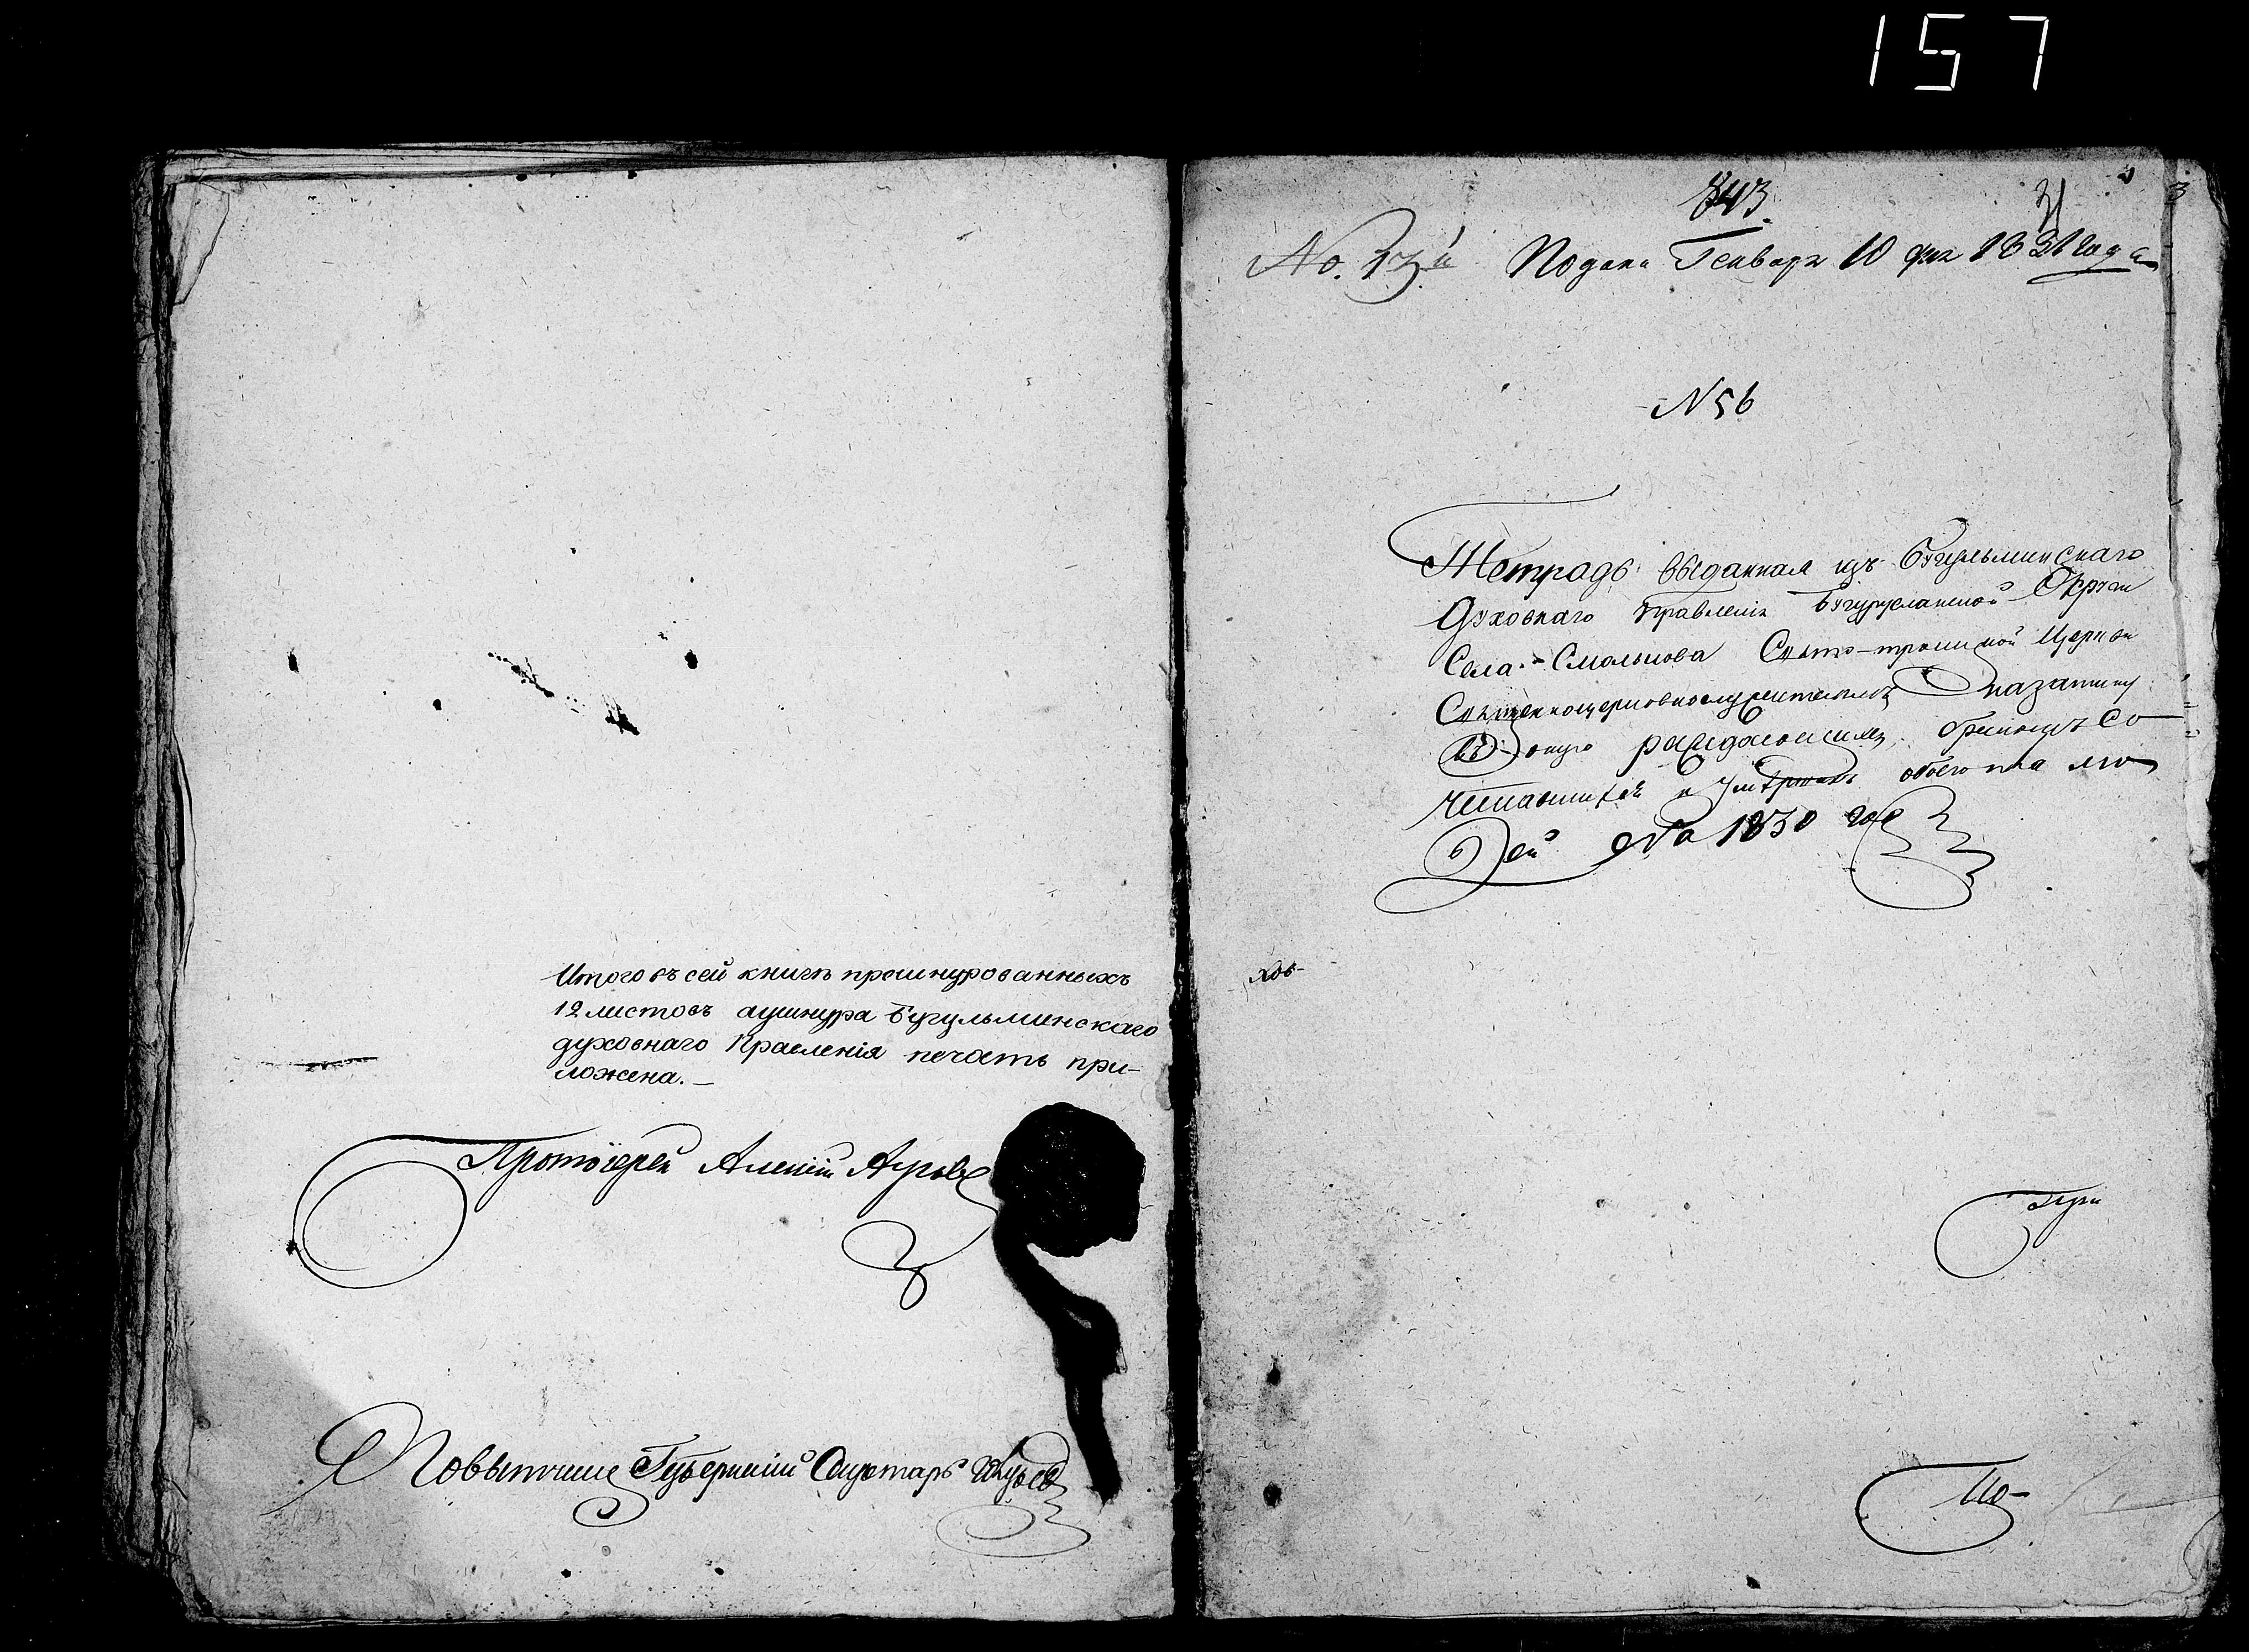 157
Итого въ сей книгѣ прошнурованныхъ
12 листовъ а у шнура Бугульминскаго
духовнаго Правленія печать при-
ложена.—
Протоіерей Алексій
Повытчикъ Губернскій Секретарь
843.
No. Подана Генваря 10 дня 1831 года
N 56
Тетрадь выданная изъ Бугульминскаго
Духовнаго Правленія Бугурусланской Округи
Села Смолькова Свято-троицкой Церкви
Священноцерковнослужителямъ для записки
въ оную раждающихся, бракомъ со
четавшихся и умершихъ обоего пола лю
дей на 1830 годъ
хов-